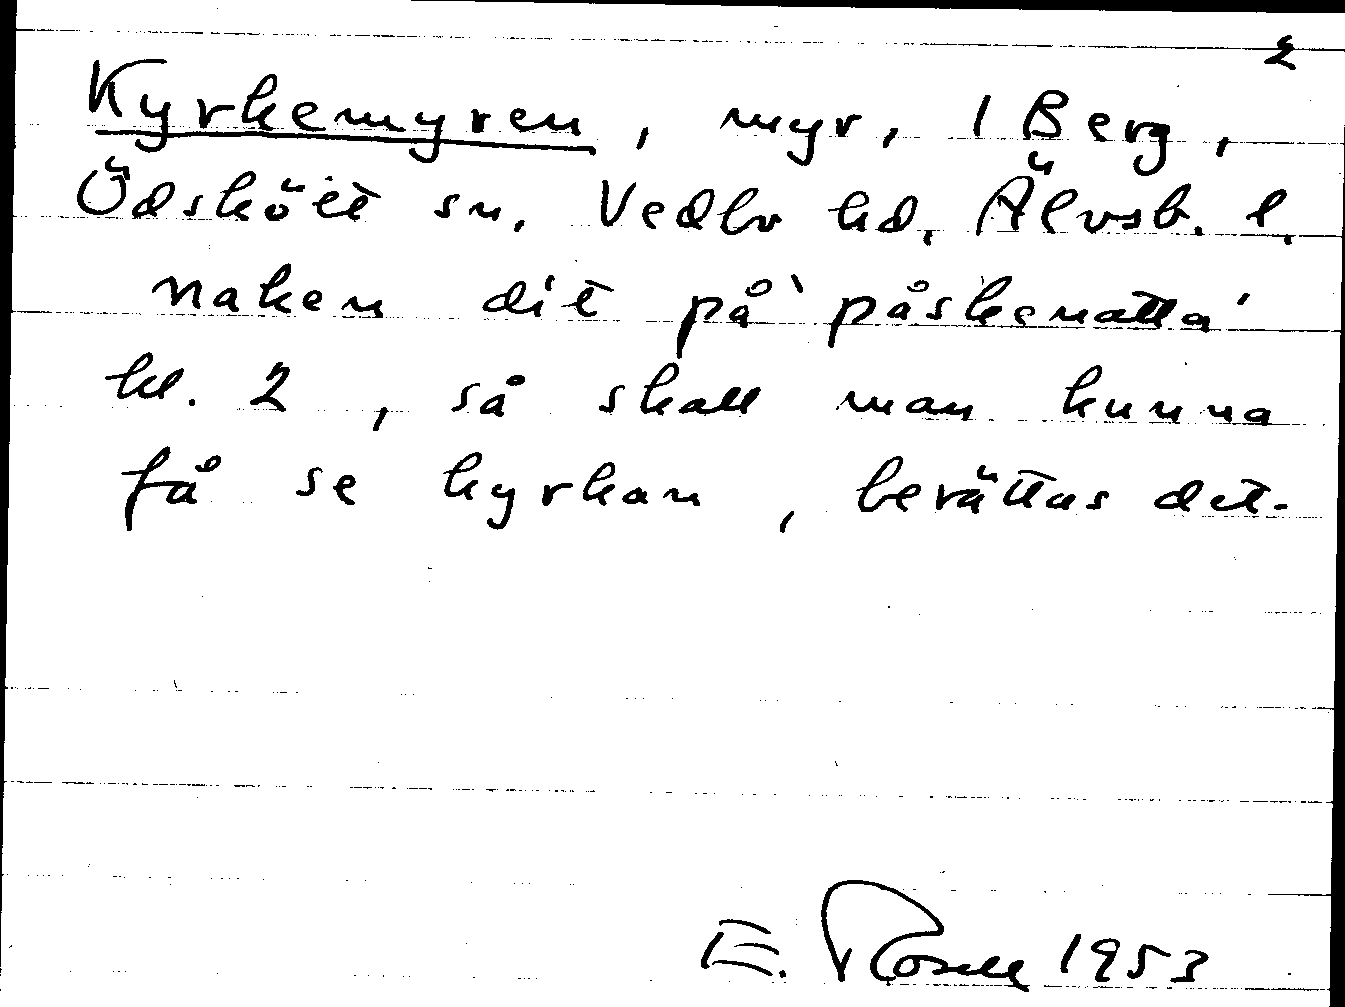 2
Kyrkemyren, myr, 1 Berg,
Ödskölt sn. Vedbo hd. Älvsb. l.
naken dit på 'påskenatta'
kl. 2, så skall man kunna
få se kyrkan, berättas det.
E. Rosell 1953